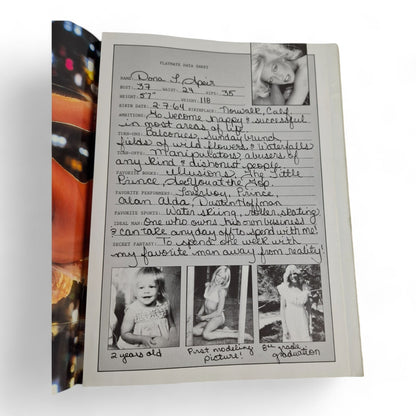 PLAYMATE DATA SHEET
NAME: Dona L. Speir
BUST: 37 WAIST: 24 HIPS: 35
HEIGHT: 5'7" WEIGHT: 118
BIRTH DATE: 2-7-64 BIRTHPLACE: Norwalk, Calif.
AMBITIONS: To become happy & successful
in most areas of life!
TURN-ONS: Balconies, Sunday brunch,
fields of wild flowers & waterfalls
TURN-OFFS: Manipulators, abusers of
any kind & dishonest people.
FAVORITE BOOKS: Illusions, The Little
Prince, See You at the Top.
FAVORITE PERFORMERS: Prince,
Alan Alda, Dustin Hoffman
FAVORITE SPORTS: Water skiing, roller skating
IDEAL MAN: one who owns his own business
& can take any day off to spend with me!
SECRET FANTASY: To spend one week with
my favorite man away from reality!
2 years old
First modeling
picture!
8th grade
graduation